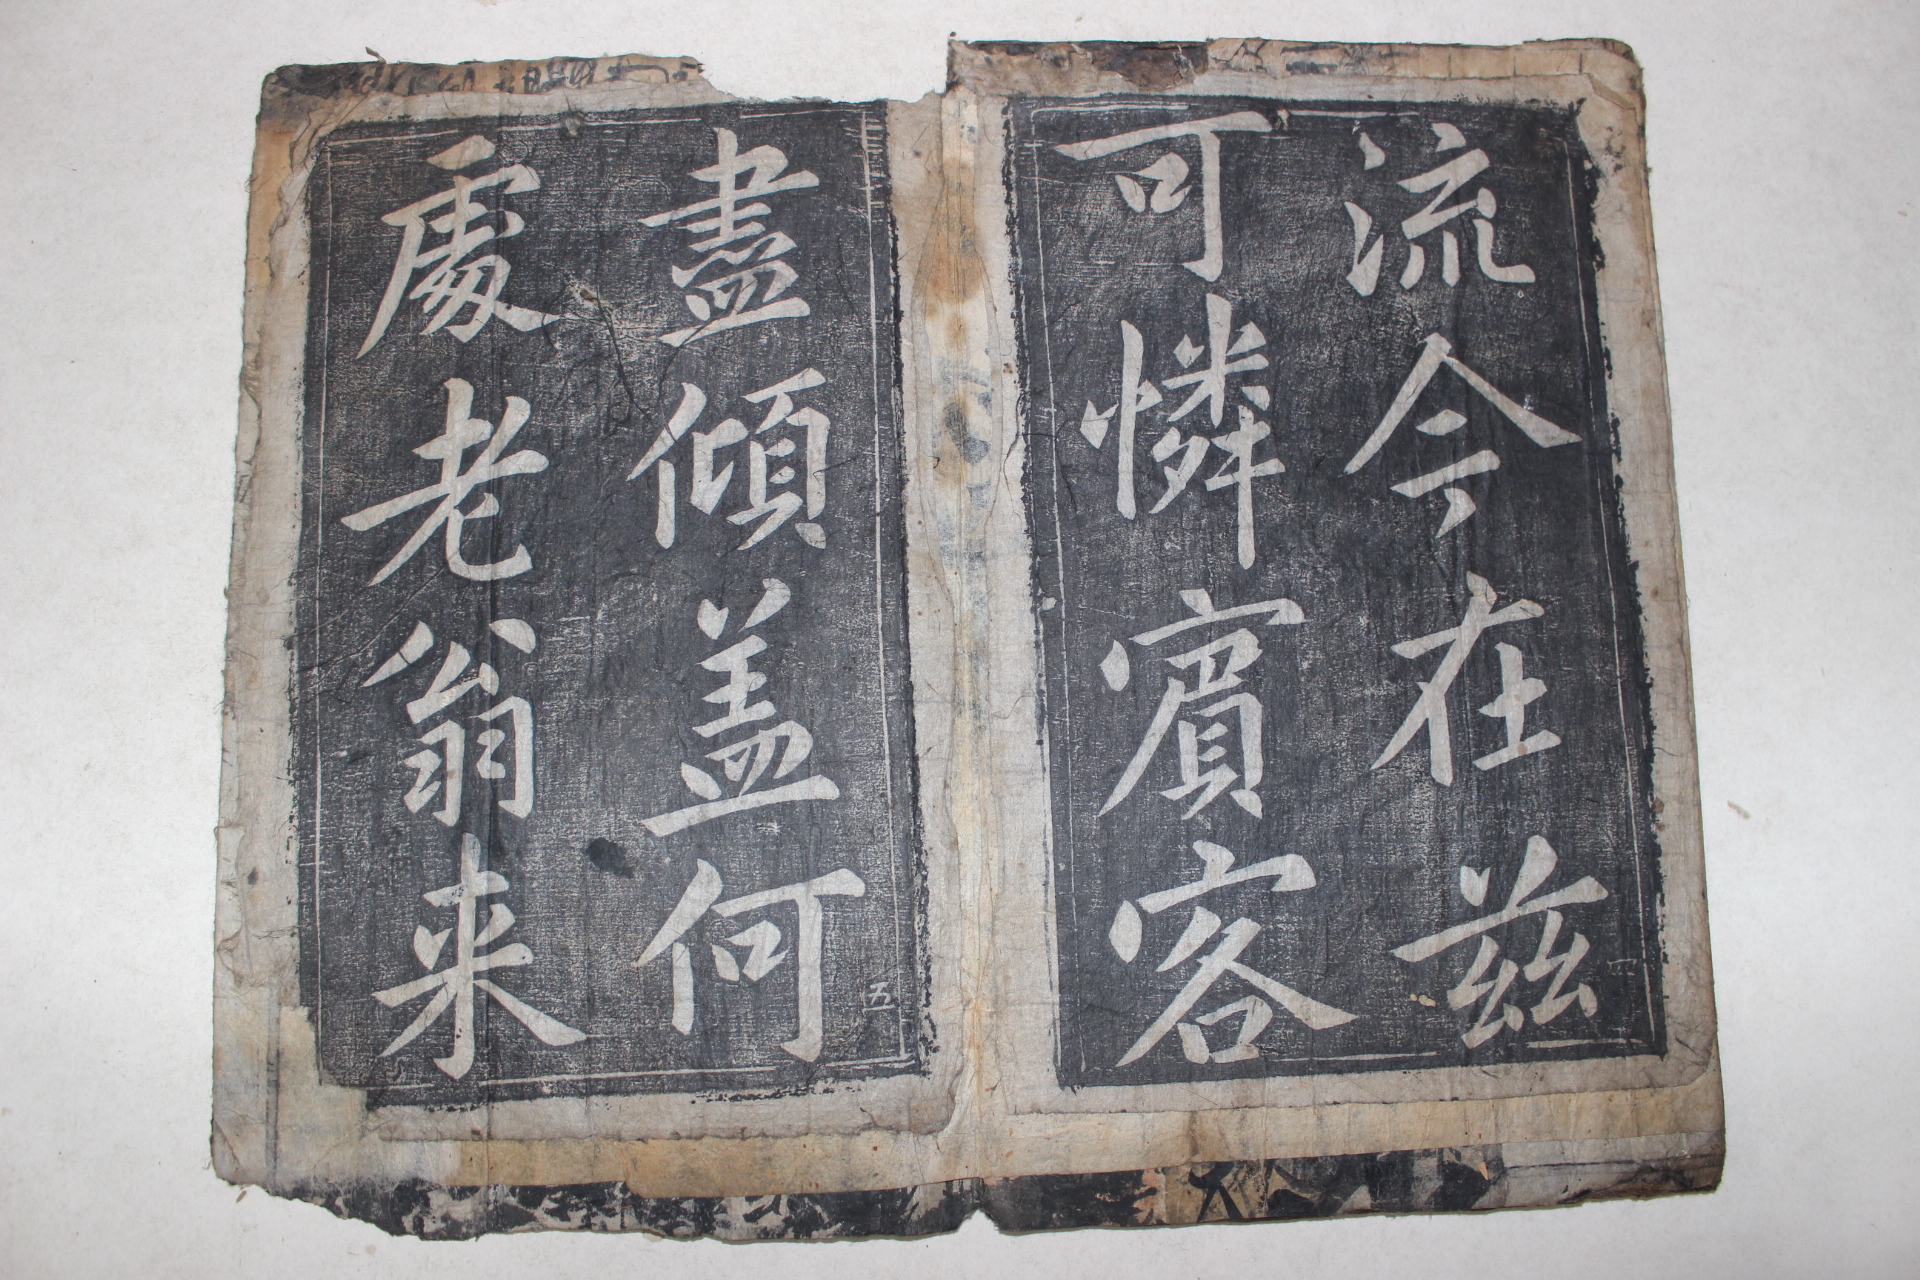 流今在茲
可憐賓客
盡傾蓋何
處老翁来
五